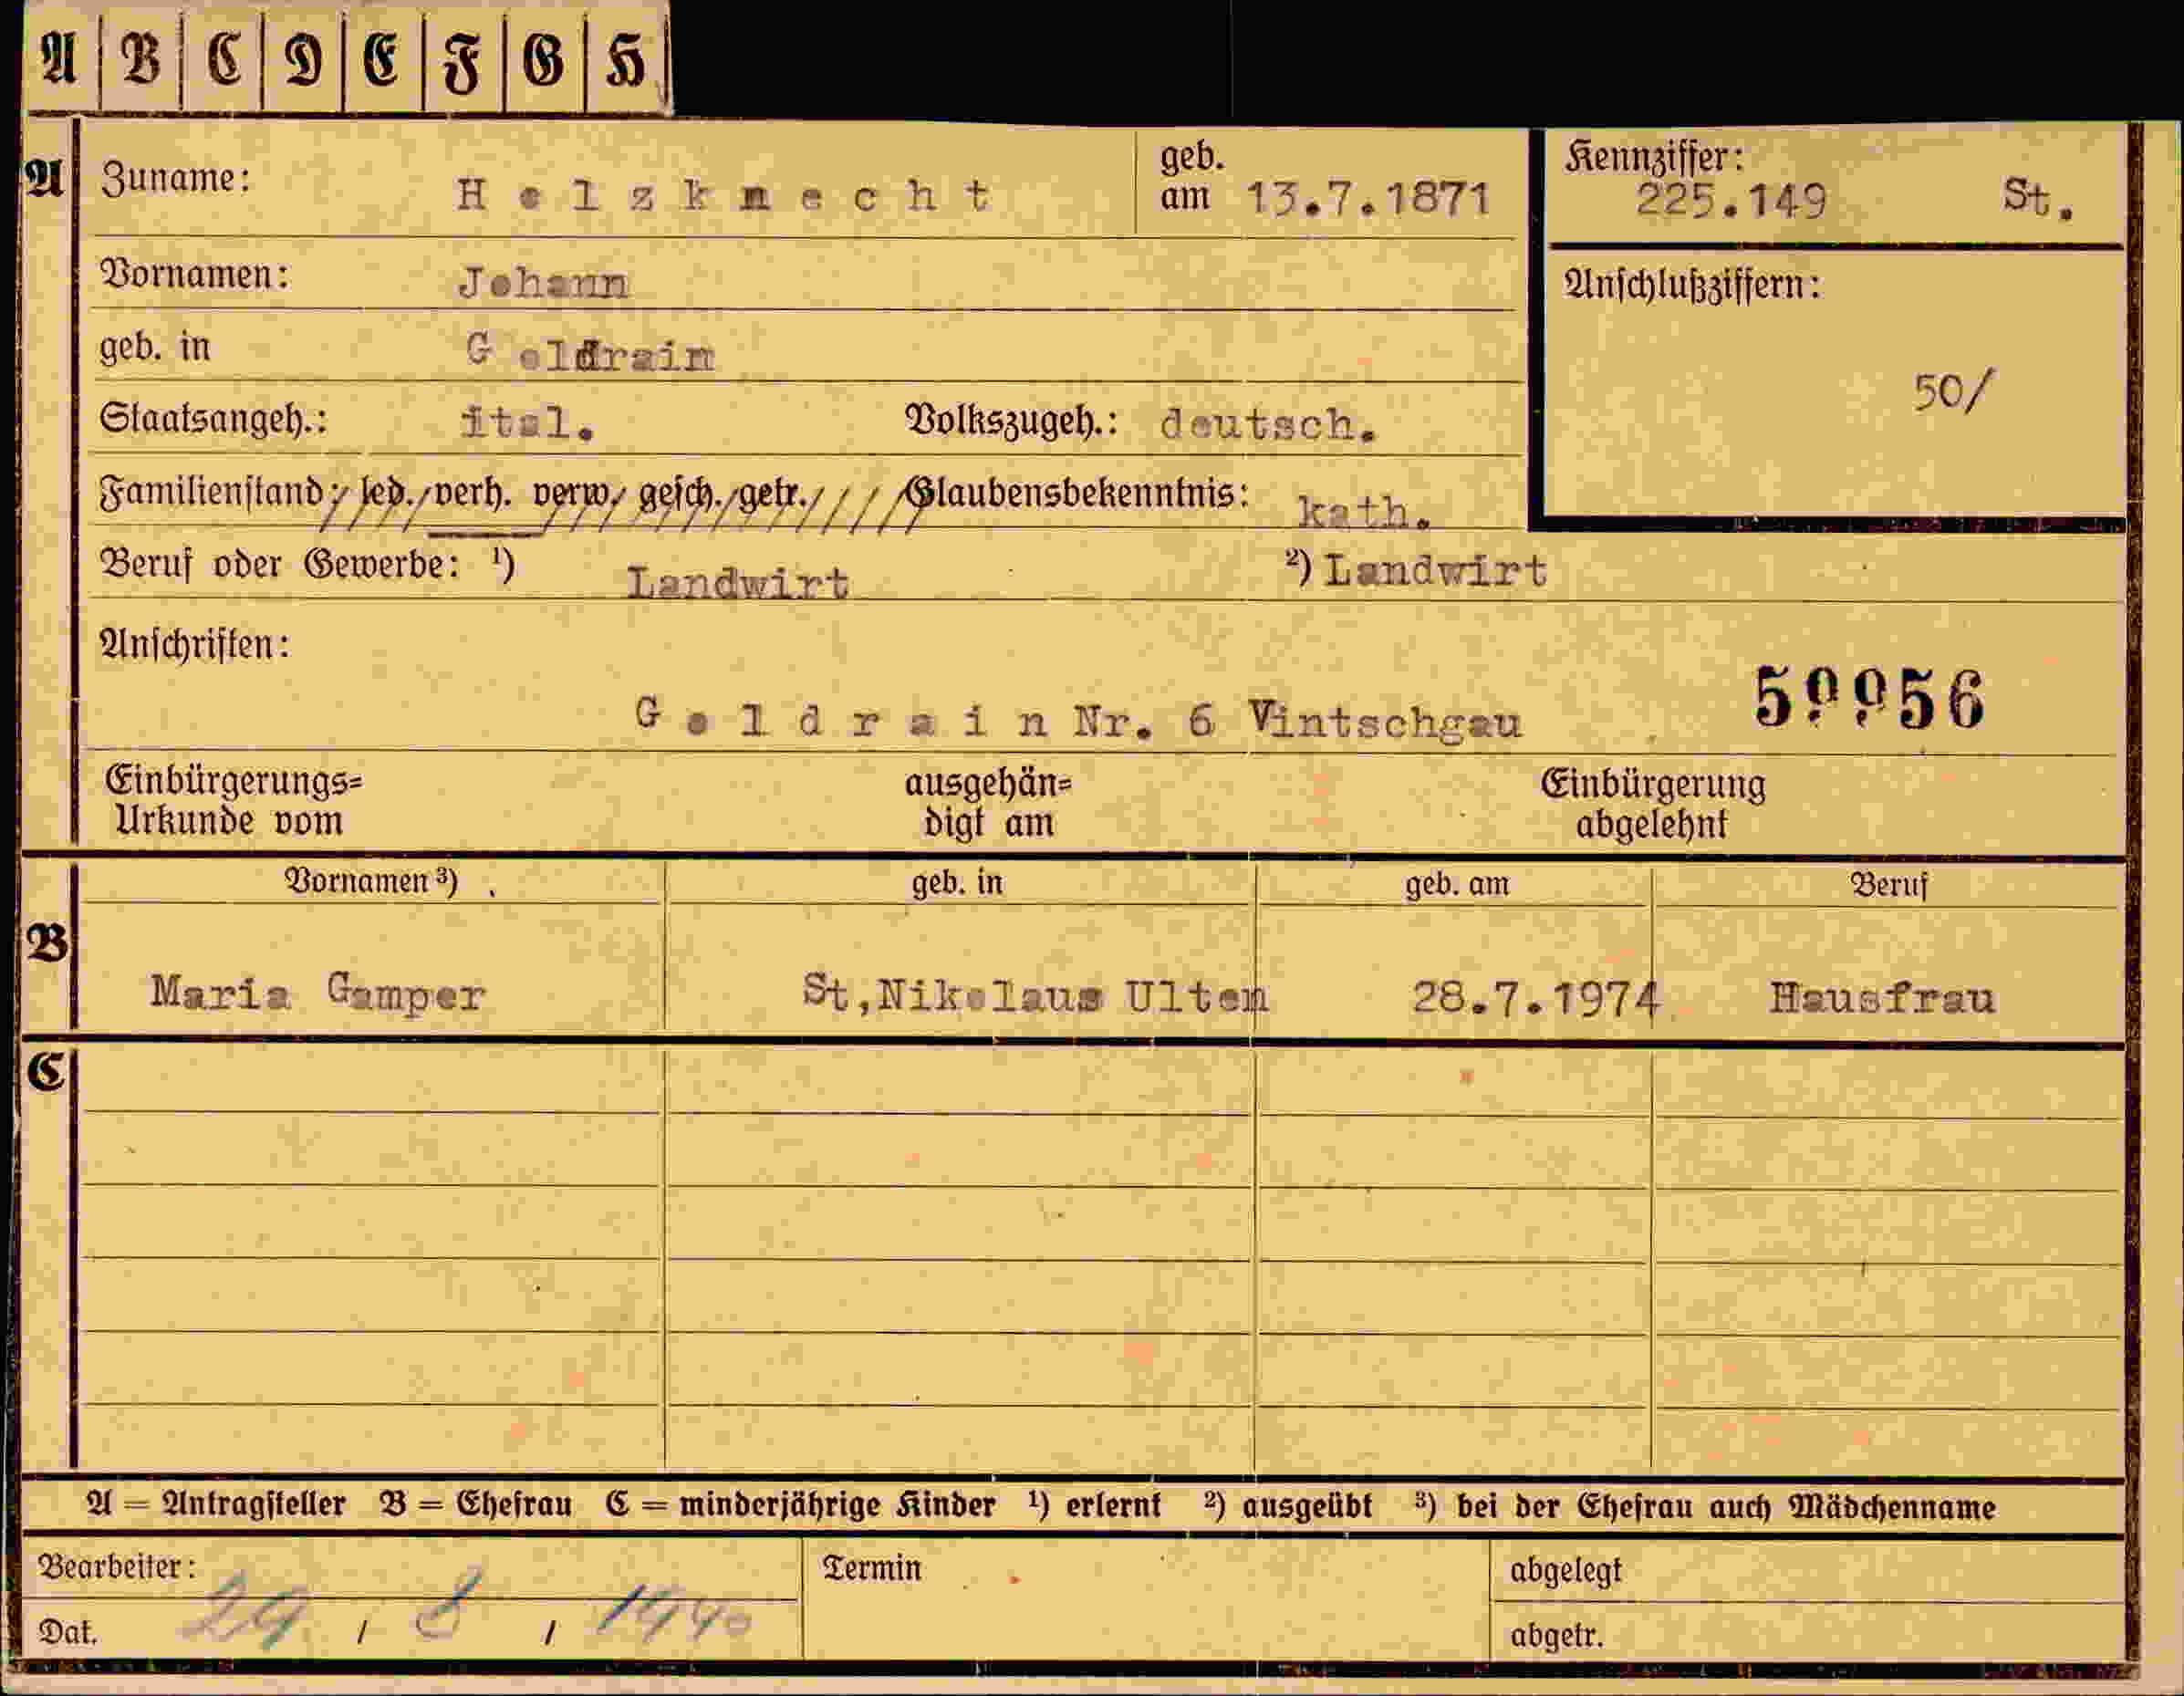 A B C D E F G H
A Zuname: Holzknecht geb. am 13.7.1871 Kennziffer: 225.149 St.
Vornamen: Johann Anschlußziffern:
geb. in Goldrain 50/
Staatsangeh.: ital. Volkszugeh.: deutsch.
Familienstand: led. verh. verw. gesch. getr. Glaubensbekenntnis: kath.
Beruf oder Gewerbe: ¹) Landwirt ²) Landwirt
Anschriften:
Goldrain Nr. 6 Vintschgau
Einbürgerungs= ausgehän= Einbürgerung
Urkunde vom digt am abgelehnt
Vornamen ³) geb. in geb. am Beruf
B Maria Gamper St,Nikolaus Ulten 28.7.1974 Hausfrau
C
A = Antragsteller B = Ehefrau C = minderjährige Kinder ¹) erlernt ²) ausgeübt ³) bei der Ehefrau auch Mädchenname
Bearbeiter: Termin abgelegt
Dat. 29 / 8 / 1940 abgetr.